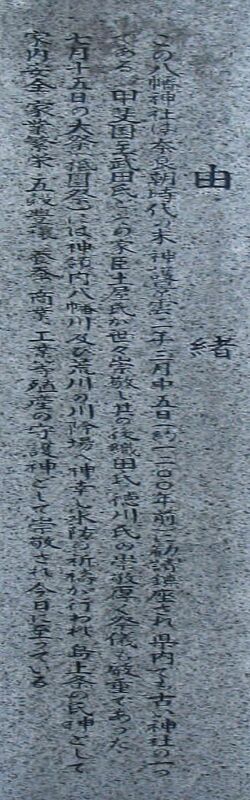 由緒
この八幡神社は奈良朝時代の末神護景雲二年三月中五日(約一二〇〇年前)に勧請鎮座され県内でも古い神社の一つ
である 甲斐国主武田氏とその家臣土屋氏が世々崇敬し其の後織田氏徳川氏の崇敬厚く祭儀も厳重であった
七月十五日の大祭(祗園会)には神領内八幡川及び荒川の川除場へ神幸し水防の祈祷が行われ島上条の氏神として
家内安全 家業繁栄 五穀豊穣 養蚕 商業 工業等殖産の守護神として崇敬され今日に至っている